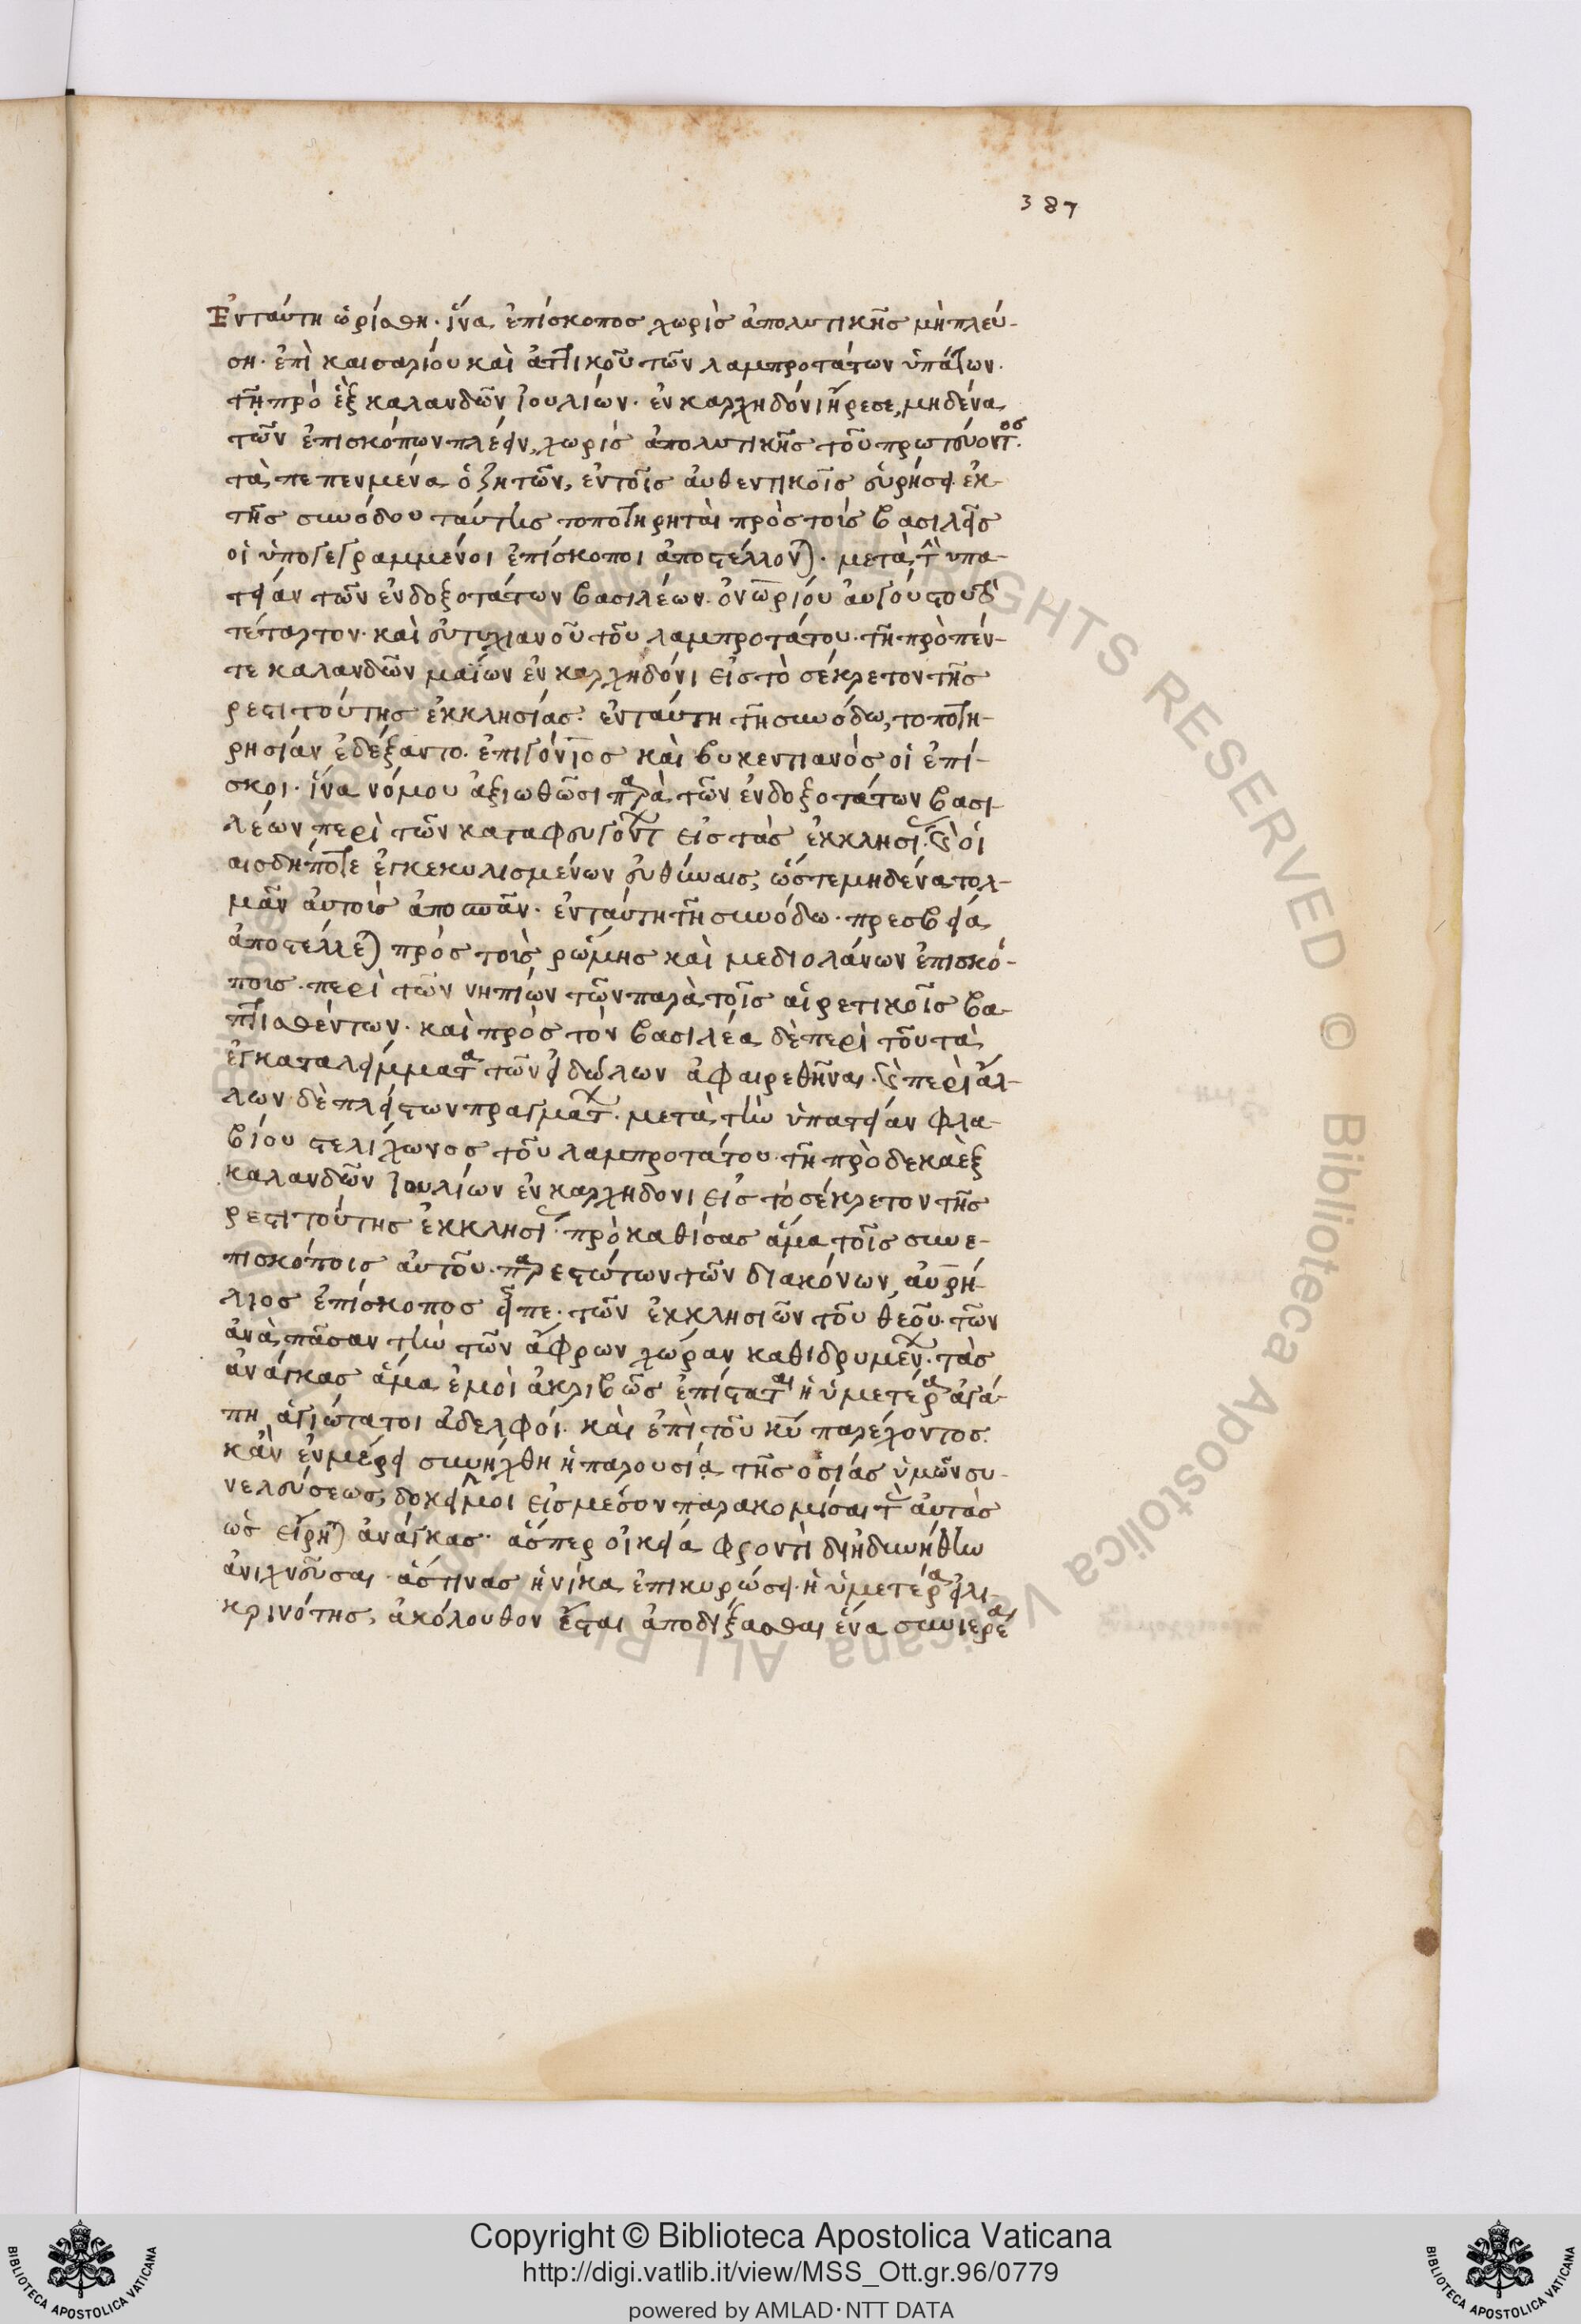 387
Ἐνταύτη ὡρίσθη· ἵνα ἐπίσκοπος χωρὶς ἀπολυτικῆς μὴ πλεύ-
ση· ἐπὶ καισαρίου καὶ ἀττικοῦ τῶν λαμπροτάτων ὑπάτων·
τῆ πρὸ ἓξ καλανδῶν ἰουλίων· ἐν καρχηδόνι ἤρεσε, μηδένα
τῶν ἐπισκόπων πλέειν, χωρὶς ἀπολυτικῆς τοῦ πρωτεύοντος·
τὰ πεπενμένα ὁ ζητῶν, ἐν τοῖς αὐθεντικοῖς εὑρήσει· ἐκ
τῆς συνόδου ταύτης τοποτηρηταὶ πρὸς τοὺς βασιλεῖς
οἱ ὑπογεγραμμένοι ἐπίσκοποι ἀποστέλλονται· μετὰ τὴν ὑπα-
τείαν τῶν ἐνδοξοτάτων βασιλέων· ὀνωρίου αὐγούστου δ
τέταρτον· καὶ εὐτυχιανοῦ τοῦ λαμπροτάτου· τῆ πρὸ πέν-
τε καλανδῶν μαΐων ἐν καρχηδόνι εἰς τὸ σέκρετον τῆς
ρεστιτούτης ἐκκλησίας· ἐνταύτη τῆ συνόδω, τοποτη-
ρησίαν ἐδέξαντο· ἐπιγόνιος καὶ βυκεντιανὸς οἱ ἐπί-
σκοι· ἵνα νόμου ἀξιωθῶσι παρὰ τῶν ἐνδοξοτάτων βασι-
λέων περὶ τῶν καταφυγόντων εἰς τὰς ἐκκλησίας· καὶ οἱ
αισδήποτε ἐγκεκυλισμένων εὐθύναις, ὥστε μηδένα τολ-
μᾶν αὐτοὺς ἀποσπᾶν· ἐνταύτη τῆ συνόδω· πρεσβεία
ἀποστέλλεται πρὸς τοὺς ῥώμης καὶ μεδιολάνων ἐπισκό-
πους· περὶ τῶν νηπίων τῶν παρὰ τοῖς αἱρετικοῖς βα-
πτισθέντων· καὶ πρὸς τὸν βασιλέα δὲ περὶ τοῦ τὰ
ἐγκαταλείμματα τῶν εἰδώλων ἀφαιρεθῆναι· καὶ περὶ ἄλ-
λων δὲ πλείστων πραγμάτων· μετὰ τὴν ὑπατείαν φλα-
βίου στελίχωνος τοῦ λαμπροτάτου· τῆ πρὸ δεκαὲξ
καλανδῶν ἰουλίων ἐν καρχηδόνι εἰς τὸ σέκρετον τῆς
ρεστιτούτης ἐκκλησίας· πρὸκαθίσας ἅμα τοῖς συνε-
πισκόποις αὐτοῦ· παρεστώτων τῶν διακόνων, αὐρή-
λιος ἐπίσκοπος εἶπε· τῶν ἐκκλησιῶν τοῦ θεοῦ· τῶν
ἀνὰ πᾶσαν τὴν τῶν ἄφρων χώραν καθιδρυμένων· τὰς
ἀνάγκας ἅμα ἐμοὶ ἀκριβῶς ἐπίσταται ἡ ὑμετέρα ἀγά-
πη ἁγιώτατοι ἀδελφοί· καὶ ἐπὶ τοῦ κυ παρέχοντος·
κἂν ἐν μέρει συνήχθη ἡ παρουσία τῆς ὁσίας ὑμῶν συ-
νελεύσεως, δοκεῖ μοι εἰς μέσον παρακομίσαι τὰς αὐτὰς
ὡς εἴρηται ἀνάγκας· ἅσπερ οἰκεία φροντίδι ἠδυνήθην
ἀνιχνεῦσαι· ἅστινας ἡνίκα ἐπικυρώσει· ἡ ὑμετέρα εἰλι-
κρινότης, ἀκόλουθον ἔσται ἀποδείξασθαι ἕνα συνιερέα
Copyright © Biblioteca Apostolica Vaticana
http://digi.vatlib.it/view/MSS_Ott.gr.96/0779
powered by AMLAD·NTT DATA